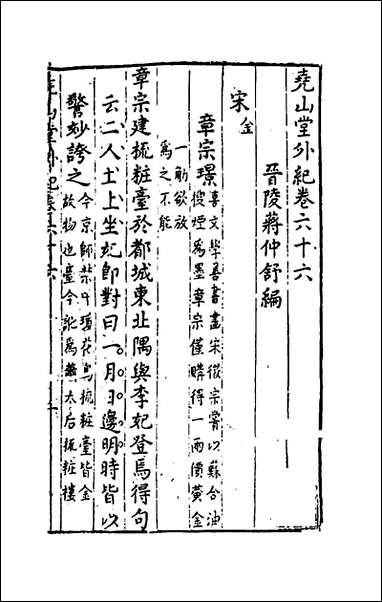 堯山堂外紀卷六十六
晉陵蔣仲舒編
宋金
章宗璟喜文學善書畫宋徽宗嘗以蘇合油
搜煙為墨章宗僅購得一兩價黃金
一觔欲放
為之不能
章宗建梳粧臺於都城東北隅與李妃登焉得句
云二人土上坐妃卽對曰一月日邊明時皆以
警妙誇之今京師禁中瓊花島梳粧臺皆金
故物也臺今訛為蕭太后梳粧樓
堯山堂外紀卷六十六